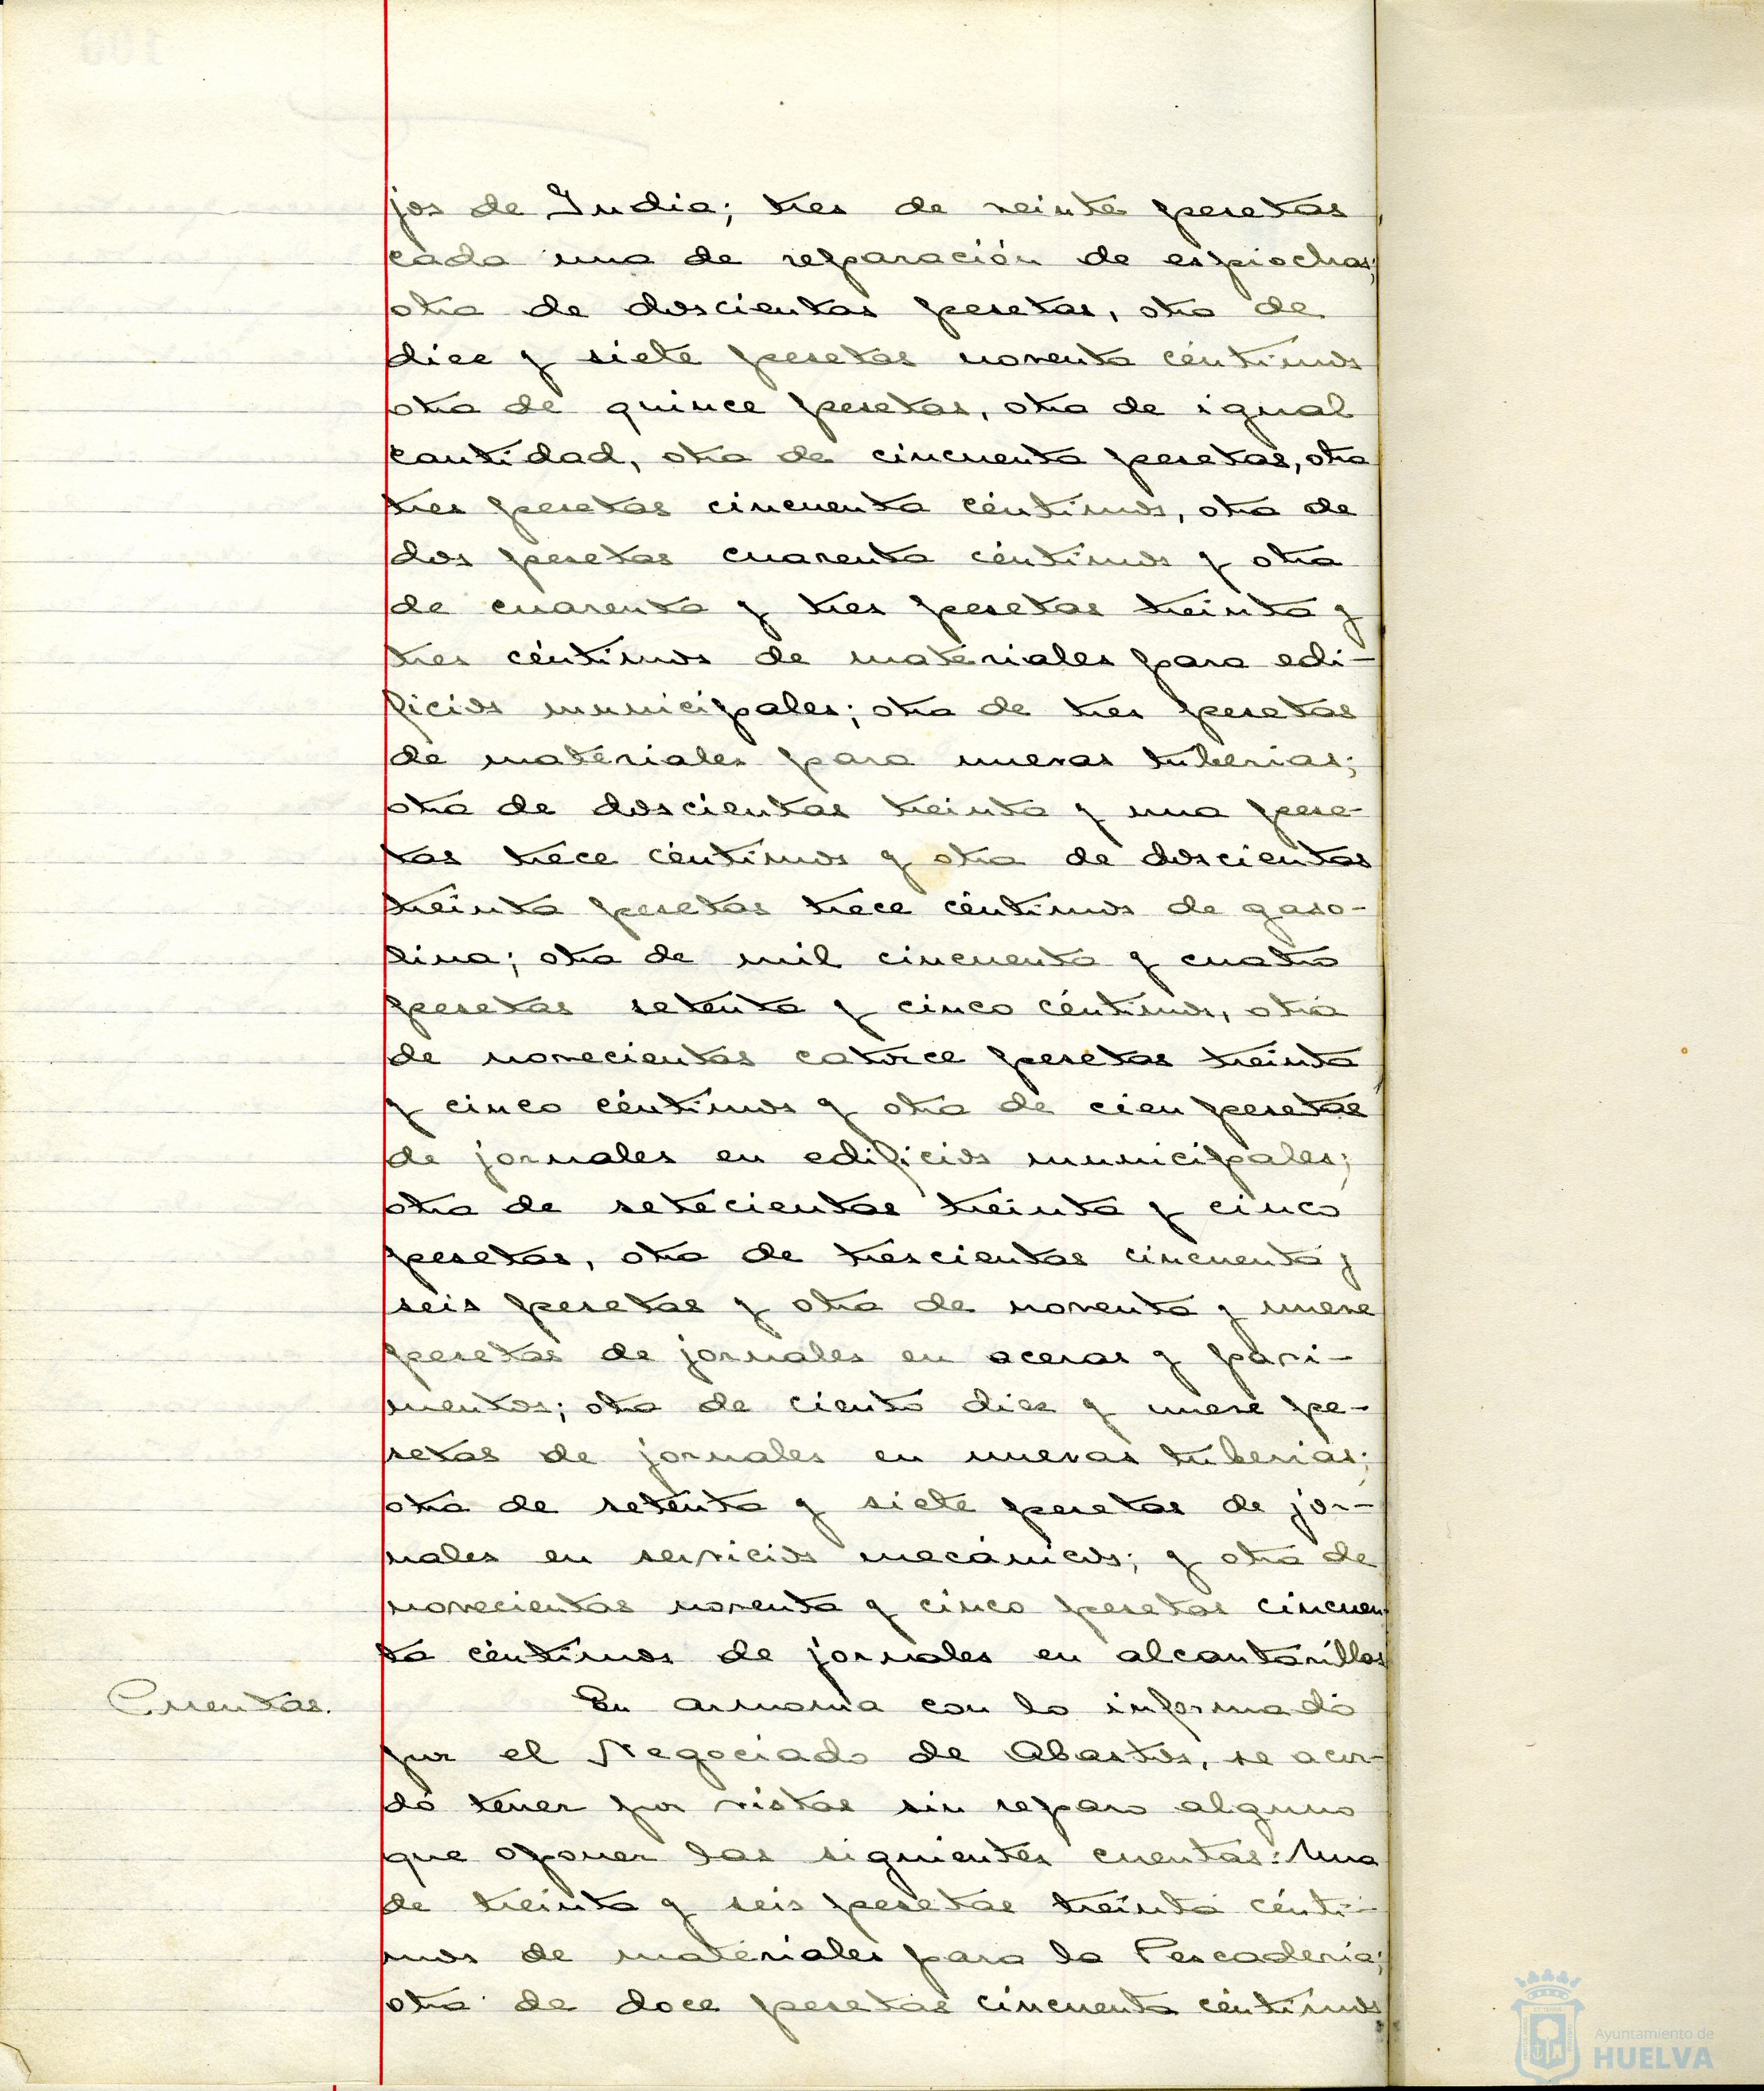 jos de India; tres de veinte pesetas
cada una de reparación de espiochas;
otra de doscientas pesetas, otra de
diez y siete pesetas noventa céntimos
otra de quince pesetas, otra de igual
cantidad, otra de cincuenta pesetas, otra
tres pesetas cincuenta céntimos, otra de
dos pesetas cuarenta céntimos y otra
de cuarenta y tres pesetas treinta y
tres céntimos de materiales para edi-
ficios municipales; otra de tres pesetas
de materiales para nuevas tuberias;
otra de doscientas treinta y una pese-
tas trece céntimos y otra de doscientas
treinta pesetas trece céntimos de gaso-
lina; otra de mil cincuenta y cuatro
pesetas setenta y cinco céntimos, otra
de novecientas catorce pesetas treinta
y cinco céntimos y otra de cien pesetas
de jornales en edificios municipales;
otra de setecientas treinta y cinco
pesetas, otra de trescientas cincuenta y
seis pesetas y otra de noventa y nueve
pesetas de jornales en aceras y pavi-
mentos; otra de ciento diez y nueve pe-
setas de jornales en nuevas tuberias;
otra de setenta y siete pesetas de jor-
nales en servicios mecánicos; y otra de
novecientas noventa y cinco pesetas cincuen-
ta céntimos de jornales en alcantarillas
Cuentas. En armonia con lo informado
por el Negociado de Abastos, se acor-
dó tener por vistas sin reparo alguno
que oponer las siguientes cuentas: Una
de treinta y seis pesetas treinta cénti-
mos de materiales para la Pescaderia;
otra de doce pesetas cincuenta céntimos
Ayuntamiento de
HUELVA